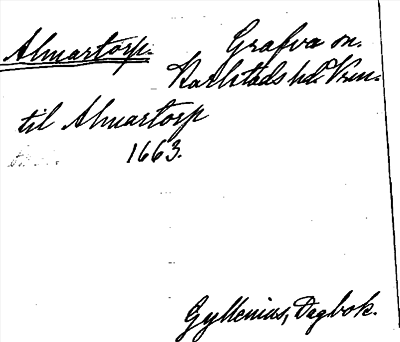 Almartorp. Grafva sn.
Karlstads hd. Vrm.
til Almartorp
1663.
Gyllenius, Dagbok.